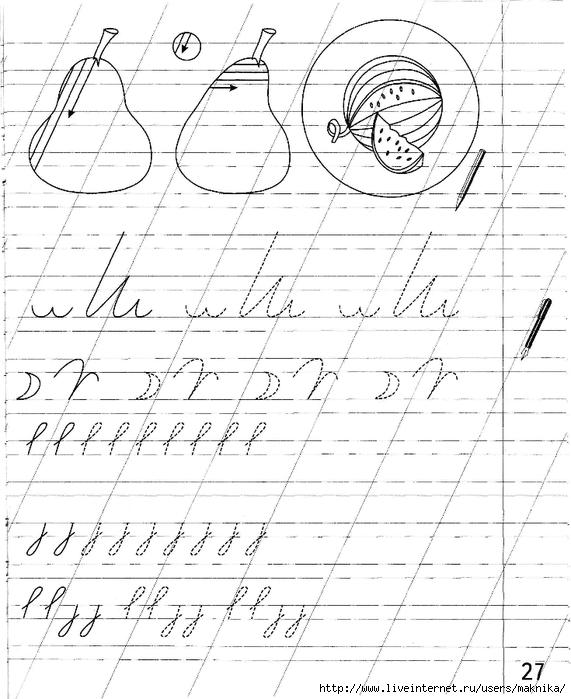 27
http://www.liveinternet.ru/users/maknika/